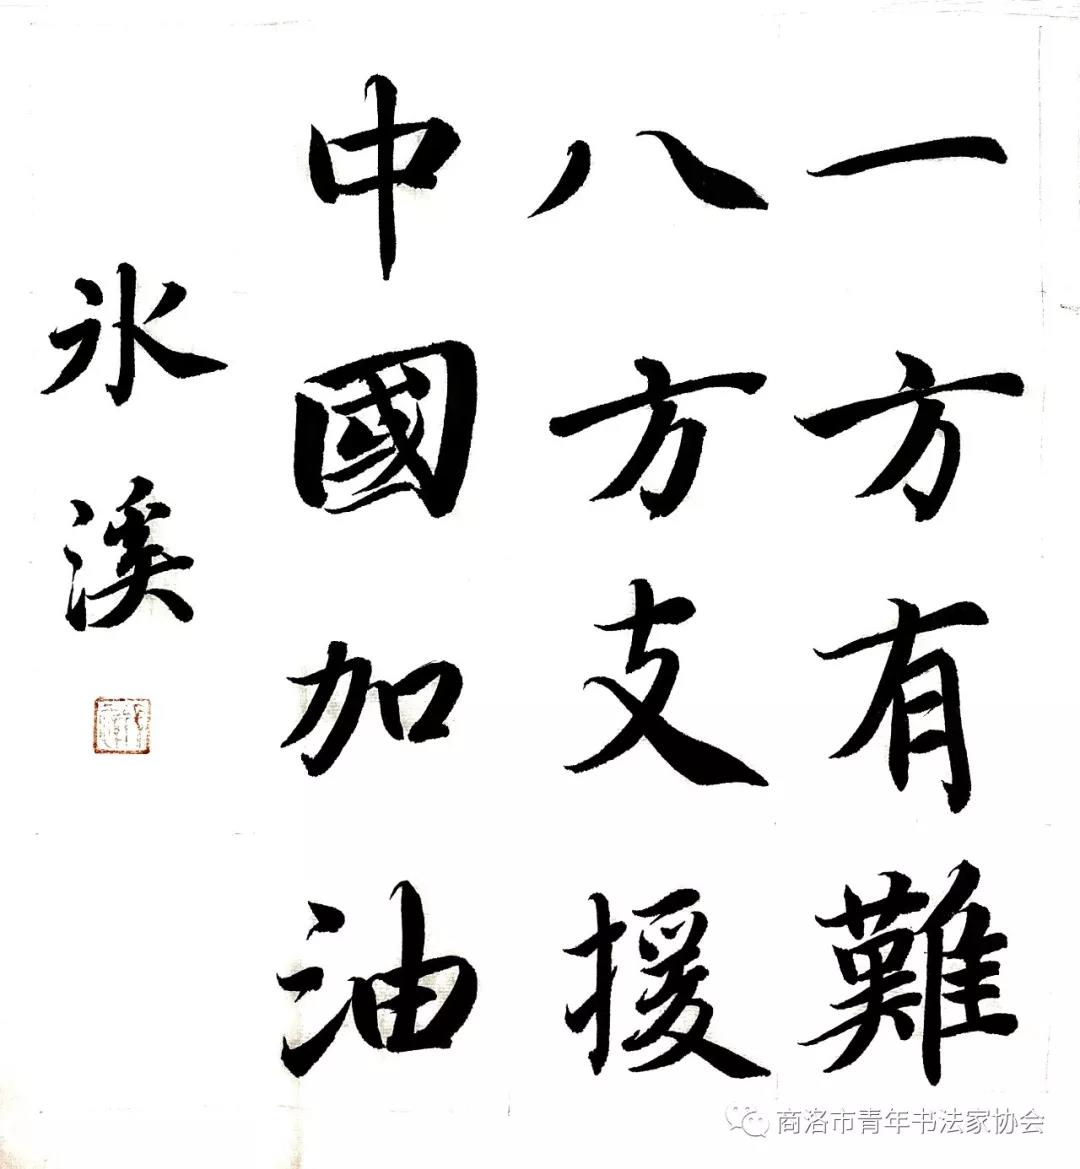 一方有難
八方支援
中國加油
氷溪
商洛市青年书法家协会